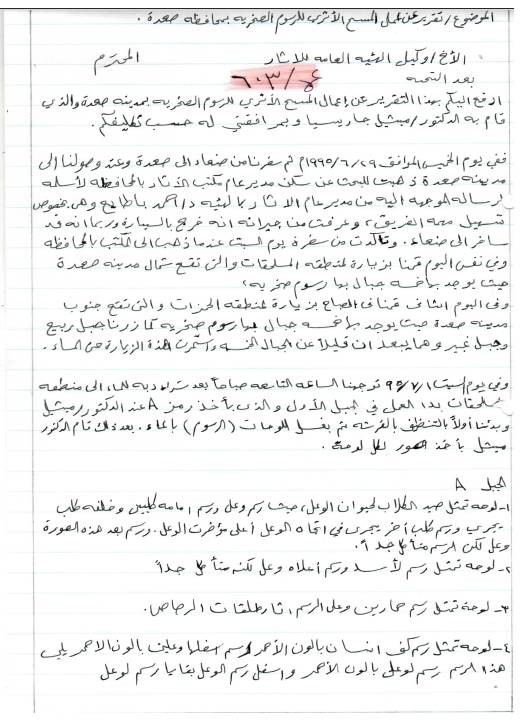 الموضوع / تقرير عن عمل المسح الأثري للرسوم الصخريه بمحافظه صعدة .
الأخ / وكيل الهيئه العامه للاثار المحترم
بعد التحيه
ارفع اليكم بهذا التقرير عن إعمال المسح الأثري للرسوم الصخريه بمدينه صعدة والذي
قام به الدكتور / ميشيل جارسيا وبمرافقتي له حسب تكليفكم .
ففي يوم الخميس الموافق ٢٩/٦/١٩٩٥م تم سفرنا من صنعاء الى صعدة وعند وصولنا الى
مدينه صعدة ذهبت للبحث عن سكن مدير عام مكتب الآثار بالمحافظه لأسلمه
الرساله الموجهة اليه من مدير عام الاثار بالهيئه د/ احمد باطايع وهي بخصوص
تسهيل مهمه الفريق، وعرفت من جيرانه انه خرج بالسيارة وربما انه قد
سافر الى صنعاء . وتأكدت من سفرة يوم السبت عندما ذهب الى المكتب بالمحافظه
وفي نفس اليوم قمنا بزيارة لمنطقه المسلحقات والتي تقع شمال مدينه صعدة
حيث يوجد بها خمسه جبال بها رسوم صخريه .
وفي اليوم الثاني قمنا في الصباح بزيارة لمنطقه الحزات والتي تقع جنوب
مدينه صعدة حيث يوجد بها خمسه جبال بها رسوم صخريه كما زرنا جبل ربيع
وجبل غبير وهما يبعدان قليلاً عن الجبال الخمسه واستمرت هذة الزيارة حتى المساء .
وفي يوم السبت ١/٧/٩٥ توجهنا الساعه التاسعه صباحاً بعد شراء دبه للماء الى منطقه
بدا العمل في الجبل الأول والذي يأخذ رمز A عند الدكتور / ميشيل
وبدئنا أولاً بالتنظيف بالفرشه ثم بغسل اللوحات (الرسوم) بالماء . بعد ذلك قام الدكتور
ميشيل بأخذ الصور لكل لوحه .
الجبل A
١- لوحه تمثل صيد الكلاب لحيوان الوعل، حيث رسم وعل ورسم امامه كلبين وخلفه كلب
يجري ورسم كلب آخر يجري في اتجاه الوعل أعلى مؤخرت الوعل . ورسم بعد هذه الصورة
وعل لكن الرسم متأكل جداً .
٢- لوحه تمثل رسم لأسد ورسم أعلاه وعل لكنه متأكل جداً
٣- لوحة تمثل رسم حمارين وعلى الرسم اثار طلقات الرصاص .
٤- لوحه تمثل رسم كف انسان بالون الأحمر ورسم اسفلها وعلين بالون الاحمر يلي
هذا الرسم رسم لوعل بالون الأحمر واسفل رسم الوعل بقايا رسم لوعل